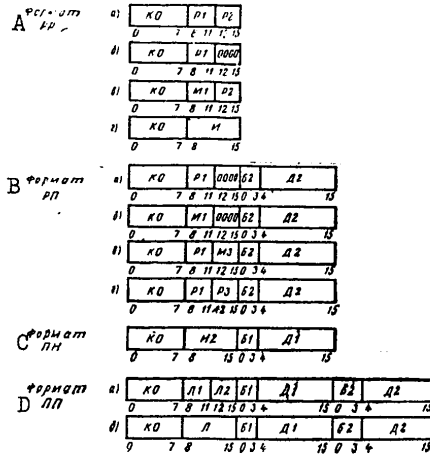 A формат РР
а) КО Р1 Р2
0 7 8 11 12 15
б) КО Р1 0000
0 7 8 11 12 15
в) КО М1 Р2
0 7 8 11 12 15
г) КО И
0 7 8 15
B формат РП
а) КО Р1 0000 Б2 Д2
0 7 8 11 12 15 0 3 4 15
б) КО М1 0000 Б2 Д2
0 7 8 11 12 15 0 3 4 15
в) КО Р1 М3 Б2 Д2
0 7 8 11 12 15 0 3 4 15
г) КО Р1 Р3 Б2 Д2
0 7 8 11 12 15 0 3 4 15
C формат ПН
КО И2 Б1 Д1
0 7 8 15 0 3 4 15
D формат ПП
а) КО Л1 Л2 Б1 Д1 Б2 Д2
0 7 8 11 12 15 0 3 4 15 0 3 4 15
б) КО Л Б1 Д1 Б2 Д2
0 7 8 15 0 3 4 15 0 3 4 15